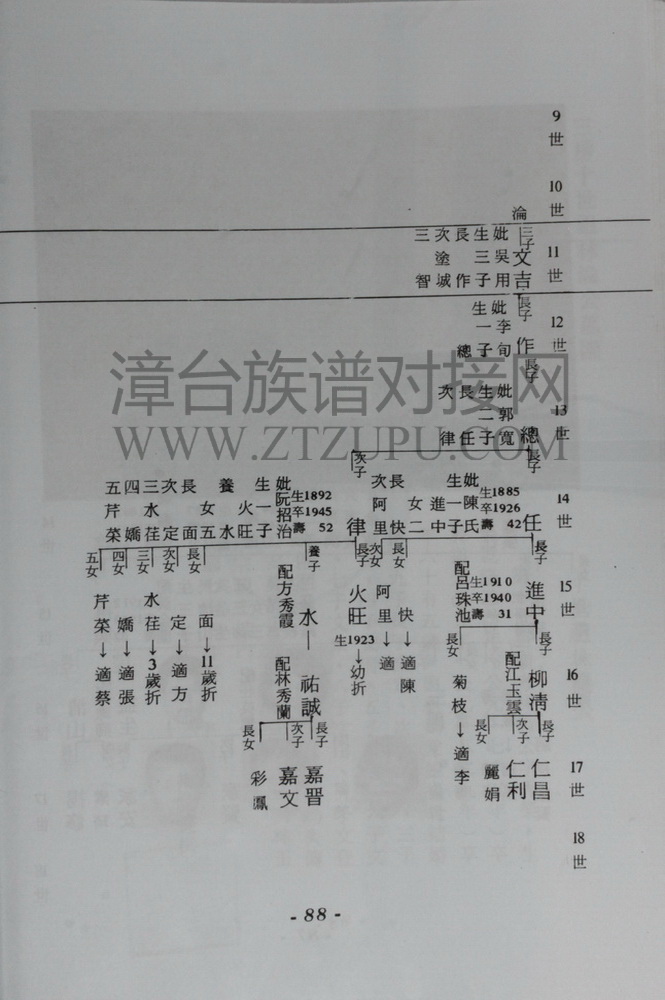 9世
10世
11世
12世
13世
14世
15世
16世
17世
18世
淪
三子
文吉
妣吳用
生三子
長作
次塗城
三智
長子
作
妣李旬
生一子
總
長子
總
妣郭寬
生二子
長任
次律
長子
任
生1885
卒1926
壽42
妣陳氏
生一子
進中
女二
長快
次阿里
次子
律
生1892
卒1945
壽52
妣阮招治
生一子
火旺
養水
女五
長面
次定
三水荏
四嬌
五芹菜
長子
進中
配呂珠池
生1910
卒1940
壽31
長女
快→適陳
次女
阿里→適
長子
火旺
生1923→幼折
養子
水
配方秀霞
長女
面→11歲折
次女
定→適方
三女
水荏→3歲折
四女
嬌→適張
五女
芹菜→適蔡
長子
柳清
配江玉雲
長女
菊枝→適李
祐誠
配林秀蘭
長子
仁昌
次子
仁利
長女
麗娟
長子
嘉晋
次子
嘉文
長女
彩鳳
- 88 -
漳台族谱对接网
WWW.ZTZUPU.COM